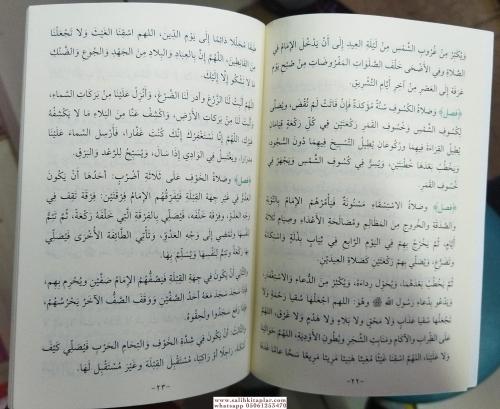 وَيُكَبِّرُ مِنْ غُرُوبِ الشَّمْسِ مِنْ لَيْلَةِ الْعِيدِ إِلَى أَنْ يَدْخُلَ الْإِمَامُ فِي
الصَّلَاةِ وَفِي الْأَضْحَى خَلْفَ الصَّلَوَاتِ الْمَفْرُوضَاتِ مِنْ صُبْحِ يَوْمِ
عَرَفَةَ إِلَى الْعَصْرِ مِنْ آخِرِ أَيَّامِ التَّشْرِيقِ.
(فصل) وَصَلَاةُ الْكُسُوفِ سُنَّةٌ مُؤَكَّدَةٌ فَإِنْ فَاتَتْ لَمْ تُقْضَ، وَيُصَلِّي
لِكُسُوفِ الشَّمْسِ وَخُسُوفِ الْقَمَرِ رَكْعَتَيْنِ فِي كُلِّ رَكْعَةٍ قِيَامَانِ
يُطِيلُ الْقِرَاءَةَ فِيهِمَا وَرُكُوعَانِ يُطِيلُ التَّسْبِيحَ فِيهِمَا دُونَ السُّجُودِ
وَيَخْطُبُ بَعْدَهَا خُطْبَتَيْنِ، وَيُسِرُّ فِي كُسُوفِ الشَّمْسِ وَيَجْهَرُ فِي
خُسُوفِ الْقَمَرِ
(فصل) وَصَلَاةُ الِاسْتِسْقَاءِ مَسْنُونَةٌ فَيَأْمُرُهُمُ الْإِمَامُ بِالتَّوْبَةِ
وَالصَّدَقَةِ وَالْخُرُوجِ مِنَ الْمَظَالِمِ وَمُصَالَحَةِ الْأَعْدَاءِ وَصِيَامِ ثَلَاثَةِ
أَيَّامٍ ثُمَّ يَخْرُجُ بِهِمْ فِي الْيَوْمِ الرَّابِعِ فِي ثِيَابِ بِذْلَةٍ وَاسْتِكَانَةٍ
وَتَضَرُّعٍ، وَيُصَلِّي بِهِمْ رَكْعَتَيْنِ كَصَلَاةِ الْعِيدَيْنِ.
ثُمَّ يَخْطُبُ بَعْدَهُمَا، وَيُحَوِّلُ رِدَاءَهُ، وَيُكْثِرُ مِنَ الدُّعَاءِ وَالِاسْتِغْفَارِ،
وَيَدْعُو بِدُعَاءِ رَسُولِ اللهِ ﷺ وَهُوَ: اللهم اجْعَلْهَا سُقْيَا رَحْمَةٍ وَلَا
تَجْعَلْهَا سُقْيَا عَذَابٍ وَلَا مَحْقٍ وَلَا بَلَاءٍ وَلَا هَدْمٍ وَلَا غَرَقٍ، اللهم
عَلَى الظِّرَابِ وَالْآكَامِ وَمَنَابِتِ الشَّجَرِ وَبُطُونِ الْأَوْدِيَةِ، اللهم حَوَالَيْنَا
وَلَا عَلَيْنَا، اللهم اسْقِنَا غَيْثًا مُغِيثًا هَنِيئًا مَرِيئًا مَرِيعًا سَحًّا عَامًّا غَدَقًا
-٢٢-
طَبَقًا مُجَلِّلًا دَائِمًا إِلَى يَوْمِ الدِّينِ، اللهم اسْقِنَا الْغَيْثَ وَلَا تَجْعَلْنَا
مِنَ الْقَانِطِينَ، اللهم إِنَّ بِالْعِبَادِ وَالْبِلَادِ مِنَ الْجَهْدِ وَالْجُوعِ وَالضَّنْكِ
مَا لَا نَشْكُو إِلَّا إِلَيْكَ.
اللهم أَنْبِتْ لَنَا الزَّرْعَ وَأَدِرَّ لَنَا الضَّرْعَ، وَأَنْزِلْ عَلَيْنَا مِنْ بَرَكَاتِ السَّمَاءِ،
وَأَنْبِتْ لَنَا مِنْ بَرَكَاتِ الْأَرْضِ، وَاكْشِفْ عَنَّا مِنَ الْبَلَاءِ مَا لَا يَكْشِفُهُ
غَيْرُكَ، اللهم إِنَّا نَسْتَغْفِرُكَ إِنَّكَ كُنْتَ غَفَّارًا، فَأَرْسِلِ السَّمَاءَ عَلَيْنَا
مِدْرَارًا، وَيَغْتَسِلُ فِي الْوَادِي إِذَا سَالَ، وَيُسَبِّحُ لِلرَّعْدِ وَالْبَرْقِ.
(فصل) وَصَلَاةُ الْخَوْفِ عَلَى ثَلَاثَةِ أَضْرُبٍ: أَحَدُهَا أَنْ يَكُونَ
الْعَدُوُّ فِي غَيْرِ جِهَةِ الْقِبْلَةِ فَيُفَرِّقُهُمُ الْإِمَامُ فِرْقَتَيْنِ: فِرْقَةً تَقِفُ فِي
وَجْهِ الْعَدُوِّ، وَفِرْقَةً خَلْفَهُ، فَيُصَلِّي بِالْفِرْقَةِ الَّتِي خَلْفَهُ رَكْعَةً، ثُمَّ تُتِمُّ
لِنَفْسِهَا وَتَمْضِي إِلَى وَجْهِ الْعَدُوِّ، وَتَأْتِي الطَّائِفَةُ الْأُخْرَى فَيُصَلِّي
بِهَا رَكْعَةً وَتُتِمُّ لِنَفْسِهَا وَيُسَلِّمُ بِهَا.
وَالثَّانِي أَنْ يَكُونَ فِي جِهَةِ الْقِبْلَةِ فَيَصُفُّهُمُ الْإِمَامُ صَفَّيْنِ وَيُحْرِمُ بِهِمْ،
فَإِذَا سَجَدَ سَجَدَ مَعَهُ أَحَدُ الصَّفَّيْنِ وَوَقَفَ الصَّفُّ الْآخَرُ يَحْرُسُهُمْ،
فَإِذَا رَفَعَ سَجَدُوا وَلَحِقُوهُ.
وَالثَّالِثُ: أَنْ يَكُونَ فِي شِدَّةِ الْخَوْفِ وَالْتِحَامِ الْحَرْبِ فَيُصَلِّي كَيْفَ
أَمْكَنَهُ، رَاجِلًا أَوْ رَاكِبًا، مُسْتَقْبِلَ الْقِبْلَةِ وَغَيْرَ مُسْتَقْبِلٍ لَهَا.
-٢٣-
www.salihkitaplar.com
whatsapp 05061253470